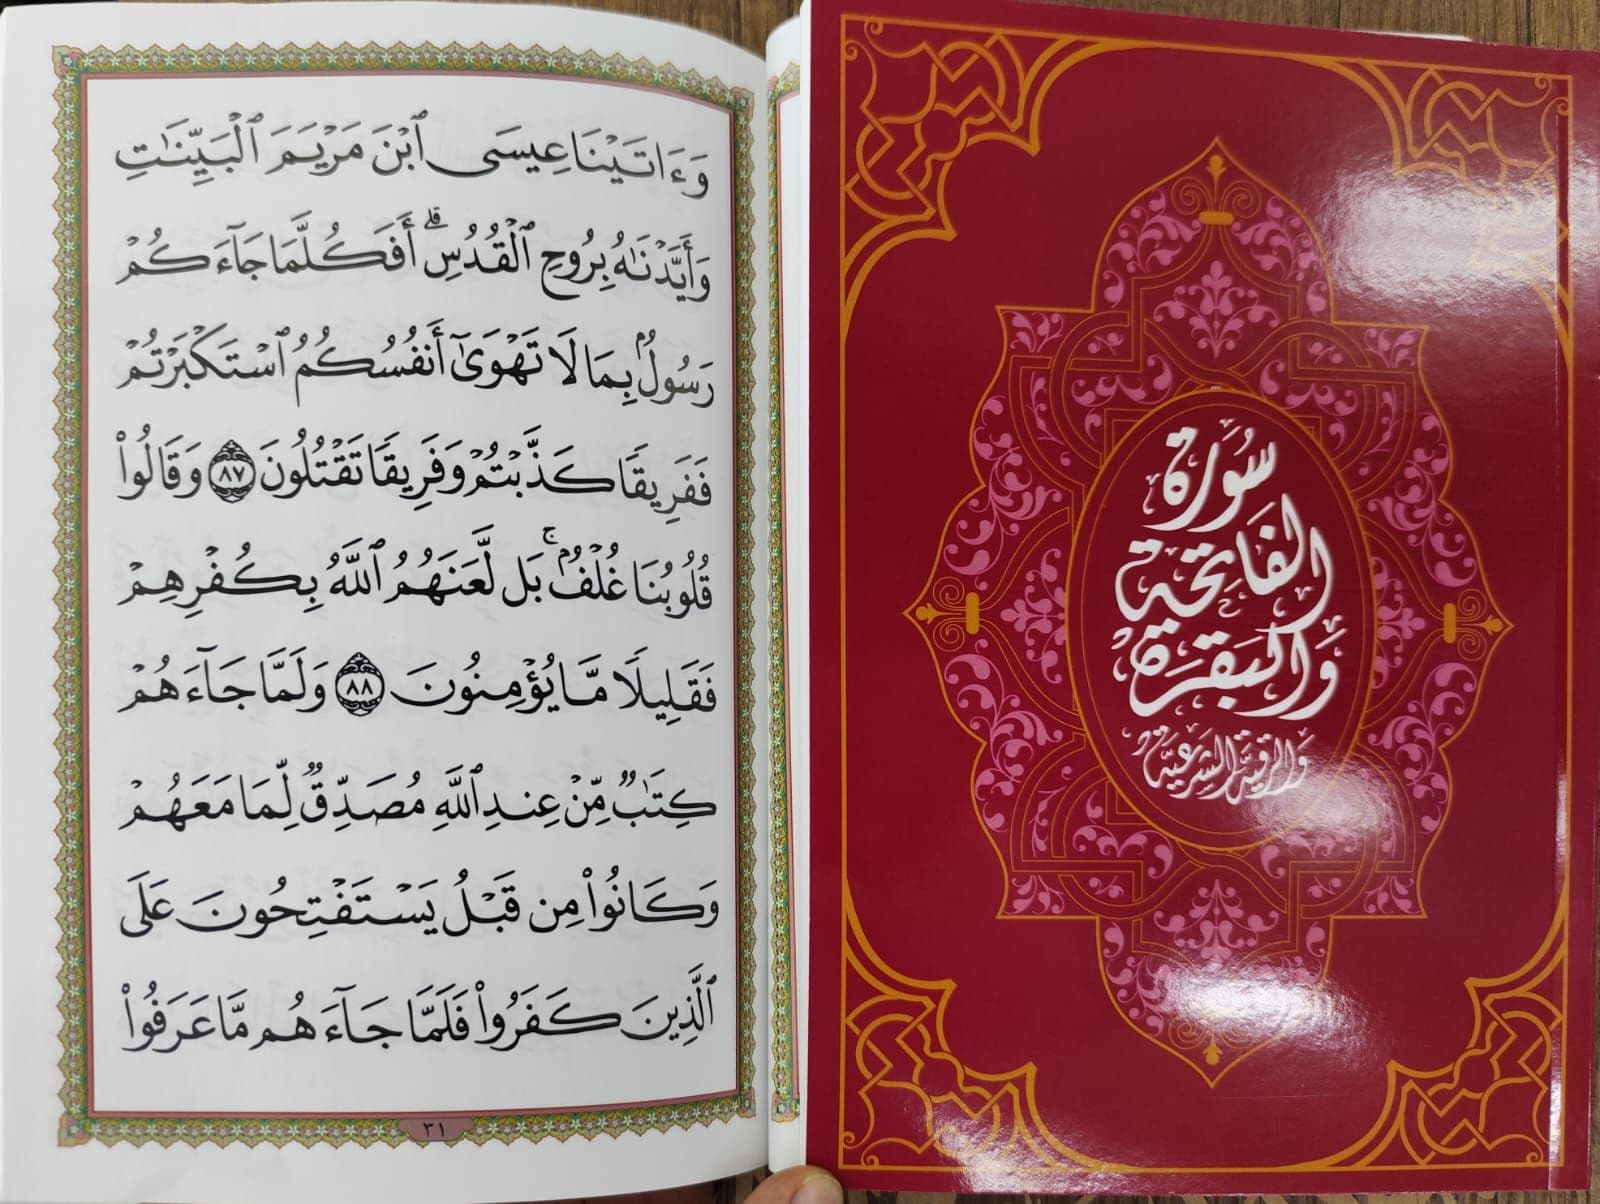 سُورَة
الفَاتِحَة
وَالبَقَرَة
وَالرُّقْيَة الشَّرْعِيَّة
وَءَاتَيْنَا عِيسَى ٱبْنَ مَرْيَمَ ٱلْبَيِّنَٰتِ
وَأَيَّدْنَٰهُ بِرُوحِ ٱلْقُدُسِ ۗ أَفَكُلَّمَا جَآءَكُمْ
رَسُولٌۢ بِمَا لَا تَهْوَىٰٓ أَنفُسُكُمُ ٱسْتَكْبَرْتُمْ
فَفَرِيقًا كَذَّبْتُمْ وَفَرِيقًا تَقْتُلُونَ ٨٧ وَقَالُوا۟
قُلُوبُنَا غُلْفٌۢ ۚ بَل لَّعَنَهُمُ ٱللَّهُ بِكُفْرِهِمْ
فَقَلِيلًا مَّا يُؤْمِنُونَ ٨٨ وَلَمَّا جَآءَهُمْ
كِتَٰبٌ مِّنْ عِندِ ٱللَّهِ مُصَدِّقٌ لِّمَا مَعَهُمْ
وَكَانُوا۟ مِن قَبْلُ يَسْتَفْتِحُونَ عَلَى
ٱلَّذِينَ كَفَرُوا۟ فَلَمَّا جَآءَهُم مَّا عَرَفُوا۟
٣١